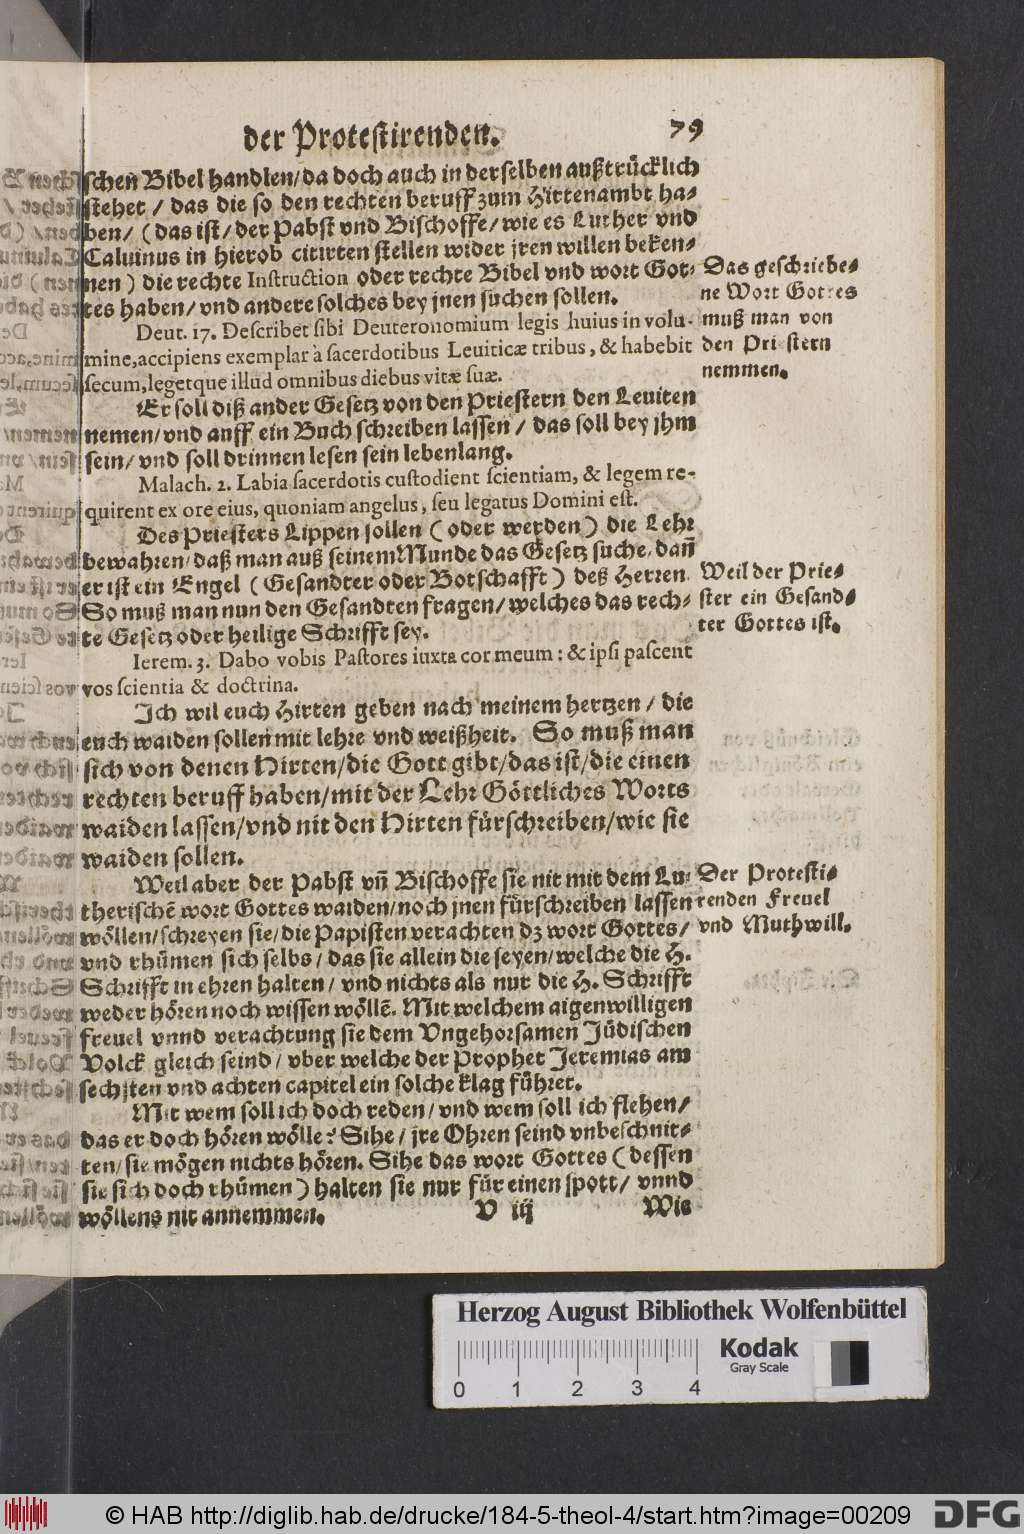 der Protestirenden. 79
schen Bibel handlen/da doch auch in derselben außtrücklich
stehet / das die so den rechten beruff zum Hirtenambt ha-
ben/ (das ist/ der Pabst vnd Bischoffe/ wie es Luther vnd
Caluinus in hierob citirten stellen wider jren willen beken-
nen) die rechte Instruction oder rechte Bibel vnd wort Got-
tes haben/ vnd andere solches bey jnen suchen sollen.
Das geschriebe-
ne Wort Gottes
muß man von
den Priestern
nemmen.
Deut. 17. Describet sibi Deuteronomium legis huius in volu-
mine, accipiens exemplar à sacerdotibus Leuiticæ tribus, & habebit
secum, legetque illud omnibus diebus vitæ suæ.
Er soll diß ander Gesetz von den Priestern den Leuiten
nemen/ vnd auff ein Buch schreiben lassen / das soll bey jhm
sein/ vnd soll drinnen lesen sein lebenlang.
Malach. 2. Labia sacerdotis custodient scientiam, & legem re-
quirent ex ore eius, quoniam angelus, seu legatus Domini est.
Des Priesters Lippen sollen (oder werden) die Lehr
bewahren/ daß man auß seinem Munde das Gesetz suche, dañ
er ist ein Engel (Gesandter oder Botschafft) deß Herren.
So muß man nun den Gesandten fragen/ welches das rech-
te Gesetz oder heilige Schrifft sey.
Weil der Prie-
ster ein Gesand-
ter Gottes ist.
Ierem. 3. Dabo vobis Pastores iuxta cor meum: & ipsi pascent
vos scientia & doctrina.
Ich wil euch Hirten geben nach meinem hertzen / die
euch waiden sollen mit lehre vnd weißheit. So muß man
sich von denen Hirten/die Gott gibt/das ist/die einen
rechten beruff haben/mit der Lehr Göttliches Worts
waiden lassen/vnd nit den Hirten fürschreiben/wie sie
waiden sollen.
Weil aber der Pabst vñ Bischoffe sie nit mit dem Lu-
therischẽ wort Gottes waiden/noch jnen fürschreiben lassen
wöllen/schreyen sie/die Papisten verachten dz wort Gottes/
vnd rhümen sich selbs/ das sie allein die seyen/welche die H.
Schrifft in ehren halten/ vnd nichts als nur die H. Schrifft
weder hören noch wissen wöllẽ. Mit welchem aigenwilligen
freuel vnnd verachtung sie dem Vngehorsamen Jüdischen
Volck gleich seind/ vber welche der Prophet Jeremias am
sechsten vnd achten capitel ein solche klag führet.
Der Protesti-
renden Freuel
vnd Muthwill.
Mit wem soll ich doch reden/ vnd wem soll ich flehen/
das er doch hören wölle? Sihe / jre Ohren seind vnbeschnit-
ten/ sie mögen nichts hören. Sihe das wort Gottes (dessen
sie sich doch rhümen) halten sie nur für einen spott/ vnnd
wöllens nit annemmen.
V iij Wie
Herzog August Bibliothek Wolfenbüttel
Kodak
Gray Scale
0 1 2 3 4
© HAB http://diglib.hab.de/drucke/184-5-theol-4/start.htm?image=00209
DFG